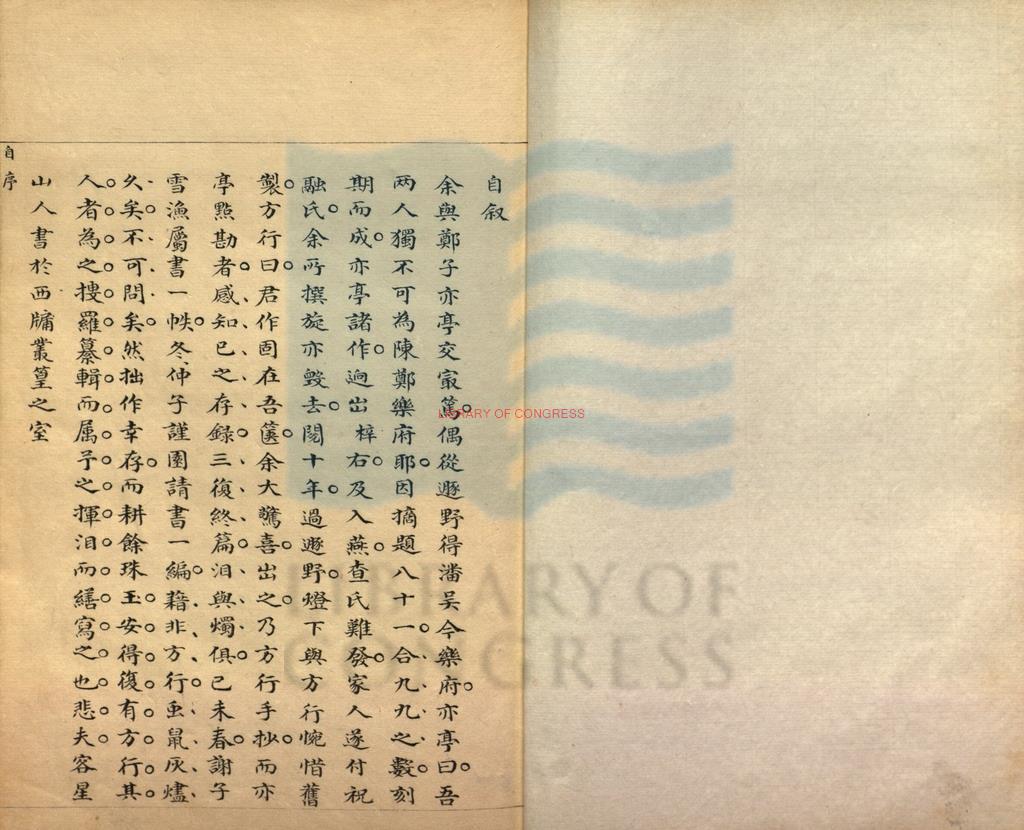 自叙
余與鄭子亦亭交寂篤偶從遯野得潘吳今樂府亦亭曰吾
兩人獨不可為陳鄭樂府耶因摘題八十一合九九之數刻
期而成亦亭諸作迥出梓右及入燕查氏難發家人遂付祝
融氏余所撰旋亦毀去閱十年過遯野燈下與方行惋惜舊
製方行曰君作固在吾篋余大驚喜出之乃方行手抄而亦
亭點勘者感知已之存録三復終篇泪與燭俱已未春謝子
雪漁屬書一帙冬仲子謹園請書一編藉非方行䖝鼠灰燼
久矣不可問矣然拙作幸存而耕餘珠玉安得復有方行其
人者為之摟羅纂輯而属予之揮泪而繕寫之也悲夫客星
山人書於西牗叢篁之室
自序
LIBRARY OF CONGRESS
LIBRARY OF
CONGRESS